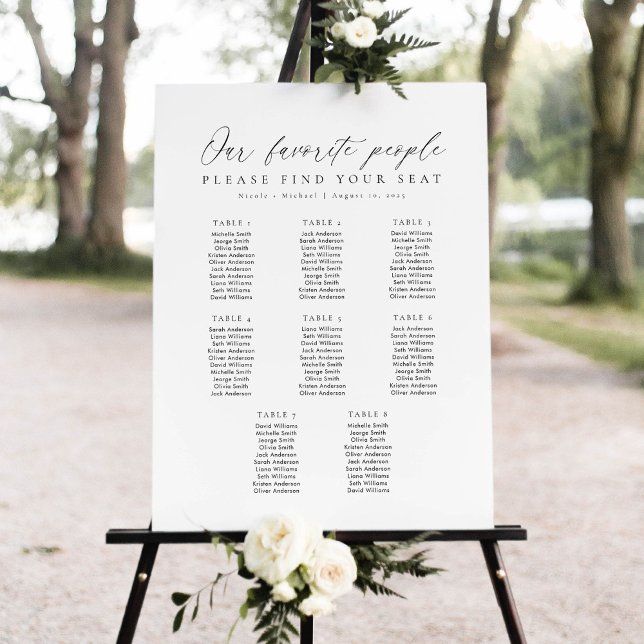 Our favorite people
PLEASE FIND YOUR SEAT
Nicole + Michael | August 10, 2025
TABLE 1
Michelle Smith
Jeorge Smith
Olivia Smith
Kristen Anderson
Oliver Anderson
Jack Anderson
Sarah Anderson
Liana Williams
Seth Williams
David Williams
TABLE 2
Jack Anderson
Sarah Anderson
Liana Williams
Seth Williams
David Williams
Michelle Smith
Jeorge Smith
Olivia Smith
Kristen Anderson
Oliver Anderson
TABLE 3
David Williams
Michelle Smith
Jeorge Smith
Olivia Smith
Jack Anderson
Sarah Anderson
Liana Williams
Seth Williams
Kristen Anderson
Oliver Anderson
TABLE 4
Sarah Anderson
Liana Williams
Seth Williams
Kristen Anderson
Oliver Anderson
David Williams
Michelle Smith
Jeorge Smith
Olivia Smith
Jack Anderson
TABLE 5
Liana Williams
Seth Williams
David Williams
Jack Anderson
Sarah Anderson
Michelle Smith
Jeorge Smith
Olivia Smith
Kristen Anderson
Oliver Anderson
TABLE 6
Jack Anderson
Sarah Anderson
Liana Williams
Seth Williams
David Williams
Michelle Smith
Jeorge Smith
Olivia Smith
Kristen Anderson
Oliver Anderson
TABLE 7
David Williams
Michelle Smith
Jeorge Smith
Olivia Smith
Jack Anderson
Sarah Anderson
Liana Williams
Seth Williams
Kristen Anderson
Oliver Anderson
TABLE 8
Michelle Smith
Jeorge Smith
Olivia Smith
Kristen Anderson
Oliver Anderson
Jack Anderson
Sarah Anderson
Liana Williams
Seth Williams
David Williams